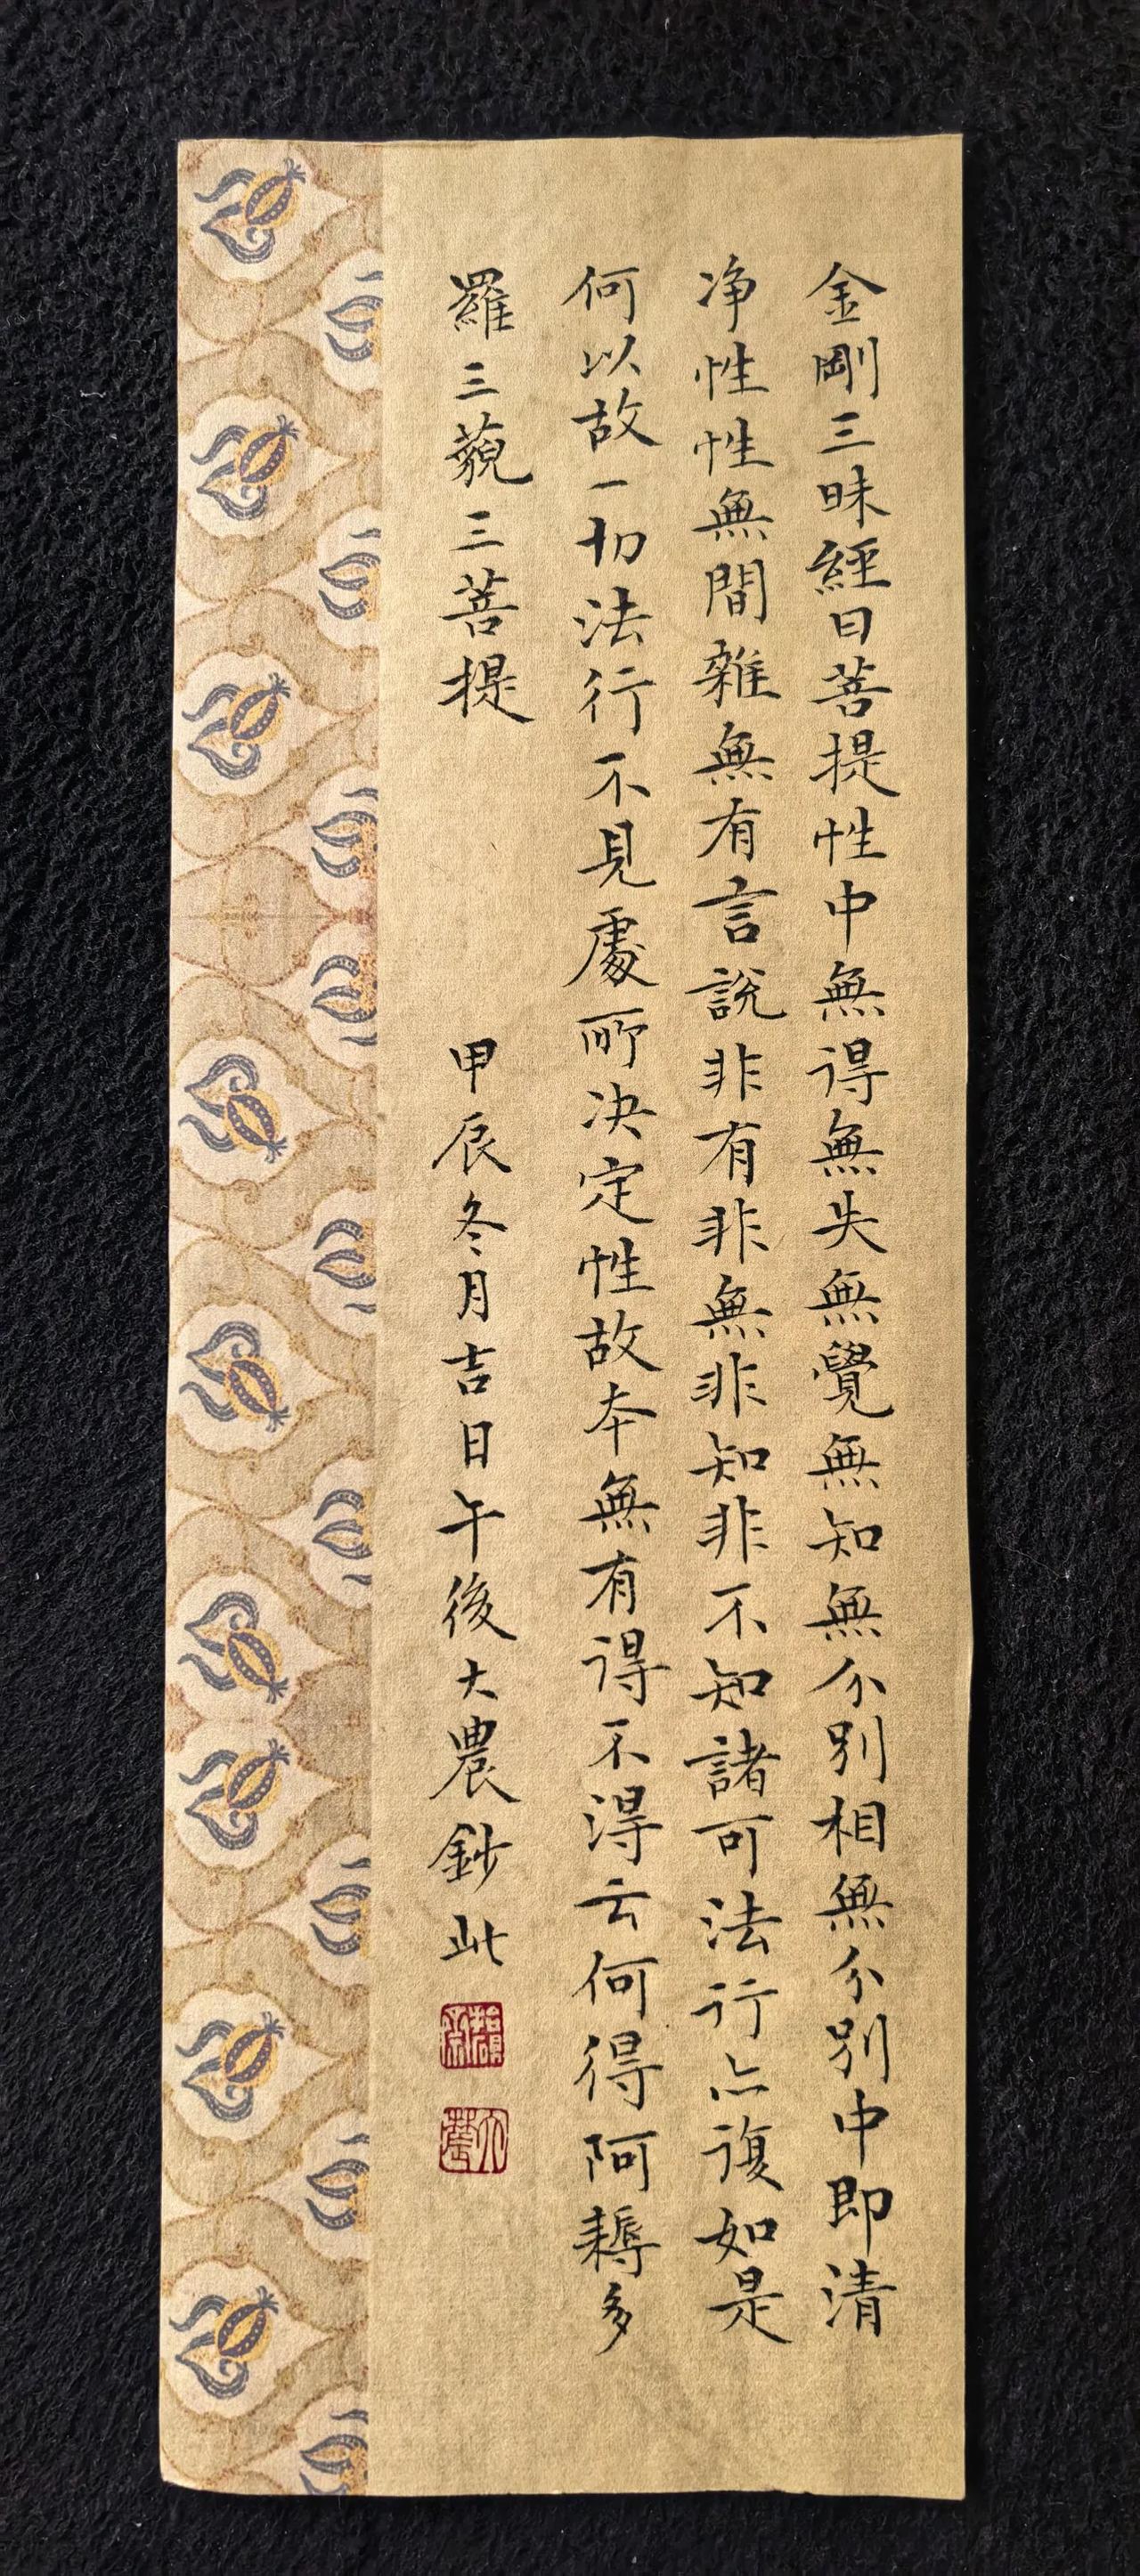 金剛三昧經曰菩提性中無得無失無覺無知無分別相無分別中即清
净性性無間雜無有言說非有非無非知非不知諸可法行亦復如是
何以故一切法行不見處所决定性故本無有得不得云何得阿耨多
羅三藐三菩提 甲辰冬月吉日午後大農鈔此